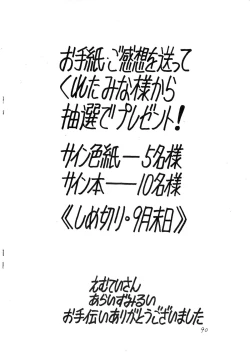 お手紙・ご感想を送って
くれたみな様から
抽選でプレゼント!
サイン色紙―5名様
サイン本――10名様
《しめ切り・9月末日》
えむてぃさん
あらいずみるい
お手伝いありがとうございました
90